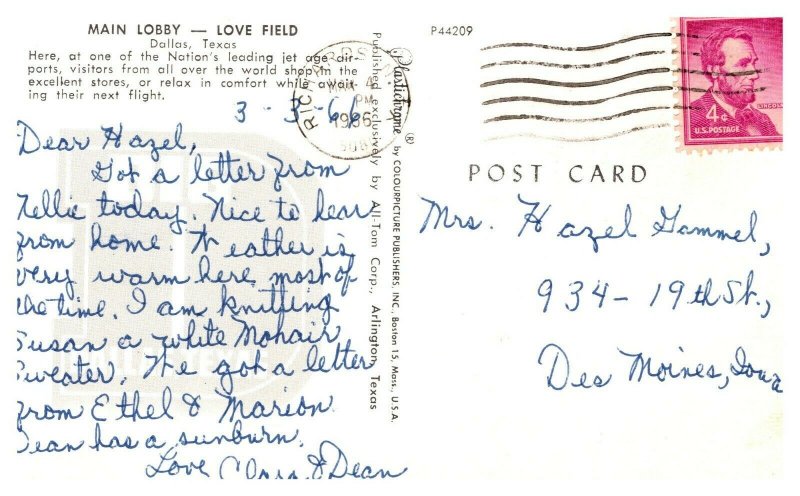 MAIN LOBBY — LOVE FIELD
Dallas, Texas
Here, at one of the Nation's leading jet age air-
ports, visitors from all over the world shop in the
excellent stores, or relax in comfort while await-
ing their next flight.
3-3-66
Dear Hazel,
Got a letter from
Nellie today. Nice to hear
from home. Weather is
very warm here most of
the time. I am knitting
Susan a white Mohair
sweater. We got a letter
from Ethel & Marion
Dean has a sunburn.
Love Clara & Dean
Plastichrome (R) by COLOURPICTURE PUBLISHERS, INC., Boston 15, Mass., U.S.A.
Published exclusively by All-Tom Corp., Arlington, Texas
RICHARDSON
MAR 4
PM
1966
P44209
LINCOLN
4¢
U.S. POSTAGE
POST CARD
Mrs. Hazel Gammel,
934-19th St.,
Des Moines, Iowa